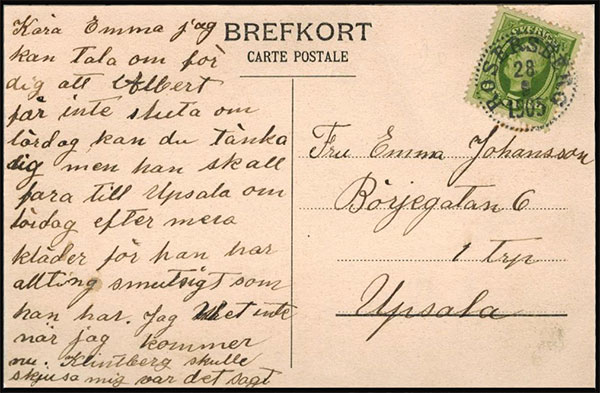 BREFKORT
CARTE POSTALE
Kära Emma jag
kan tala om för
dig att Albert
får inte sluta om
lördag kan du tänka
dig men han skall
fara till Upsala om
lördag efter mera
kläder för han har
allting smutsigt som
han har. Jag vet inte
när jag kommer
nu. Klintberg skulle
skjusa mig var det sagt
SVERIGE
ROSERSBERG
28
1905
Fru Emma Johansson
Börjegatan 6
1 trp
Upsala